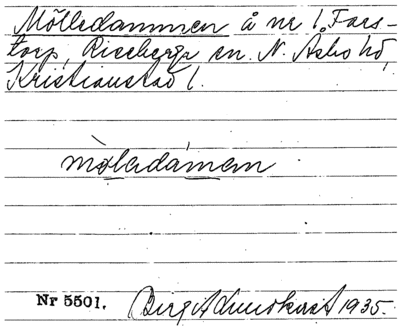 Mölledammen å nr 1, Fars-
torp, Riseberga sn. N. Åsbo hd,
Kristianstad l.
mòlledámem
Nr 5501. Birgit Lundkvist 1935.